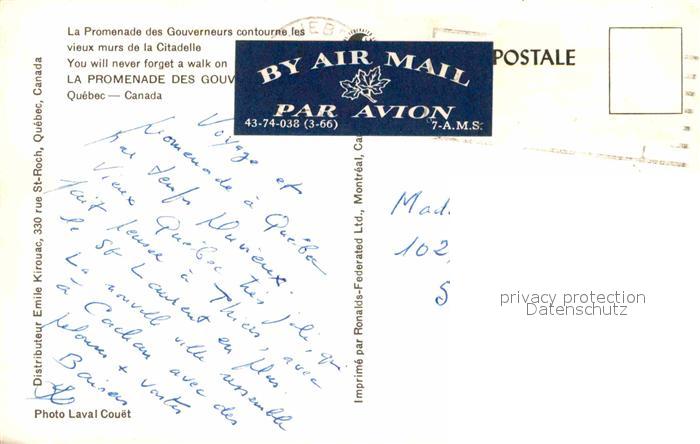 La Promenade des Gouverneurs contourne les
vieux murs de la Citadelle
You will never forget a walk on
LA PROMENADE DES GOUV
Québec — Canada
BY AIR MAIL
PAR AVION
43-74-038 (3-66) 7-A.M.S.
POSTALE
Voyage et
Promenade à Québec
par temps pluvieux.
Vieux Québec très joli, qui
fait penser à Thiers, avec
le St Laurent en plus
La nouvelle ville ressemble
à Cachan avec des
pelouses + vastes
Baisers
Mad.
102,
S
privacy protection
Datenschutz
Distributeur Emile Kirouac, 330 rue St-Roch, Québec, Canada
Imprimé par Ronalds-Federated Ltd., Montréal, Ca
Photo Laval Couët